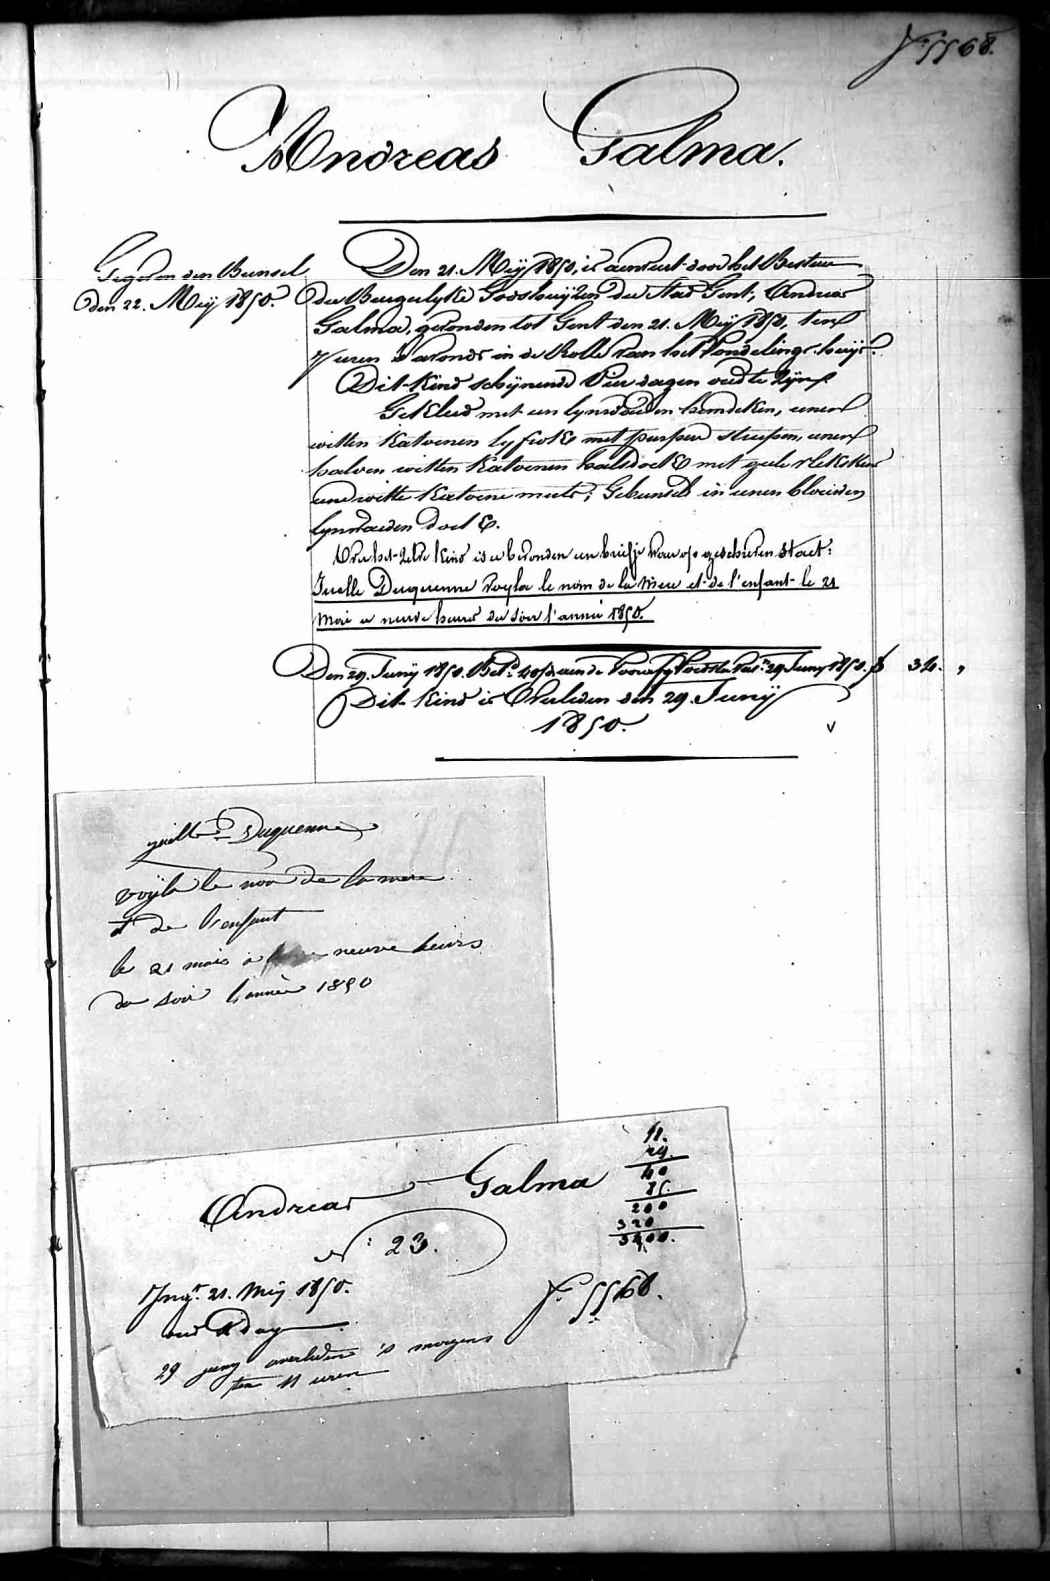 F. 5568.
Andreas Galma.
Gegeven den Bunsel
den 22. Meij 1850.
Den 21. Meij 1850, is aenveert door het Bestuer
der Burgerlyke Godshuijzen der Stad Gent, Andreas
Galma, gevonden tot Gent den 21. Meij 1850, tien
Ueren 's avonds in de Rolle van het Vondelings-huijs.
Dit Kind schijnende Vier dagen oud te Zijn
Gekleed met een lynwaeden hemdeken, eenen
witten Katoenen lyfrok met purper streepen, eenen
halven witten Katoenen halsdoek met geele vlekken
eene witte Katoene muts; Gebunseld in eenen blauwen
lynwaeden doek.
Op het Zelve Kind is er bevonden een briefje waer op geschreven Staet:
Duquenne Voyla le nom de la Mere et de l'enfant le 21
Mai a neuve heures du Soir l'année 1850.
Den 29. Junij 1850. Bet. 40 aen de 29 Juny 1850. 34. "
Dit Kind is Overleden den 29. Junij
1850.
Duquenne
voÿla le non de la mere
et de l'enfant
le 21 mais a neuve heurs
du soir l'année 1850
Andreas Galma
N: 23.
11.
29.
40
85.
200
320
3400.
Ing. 21. Meij 1850.
oud dag
F. 5568.
29 juny overleden 's morgens
ten 11 uren